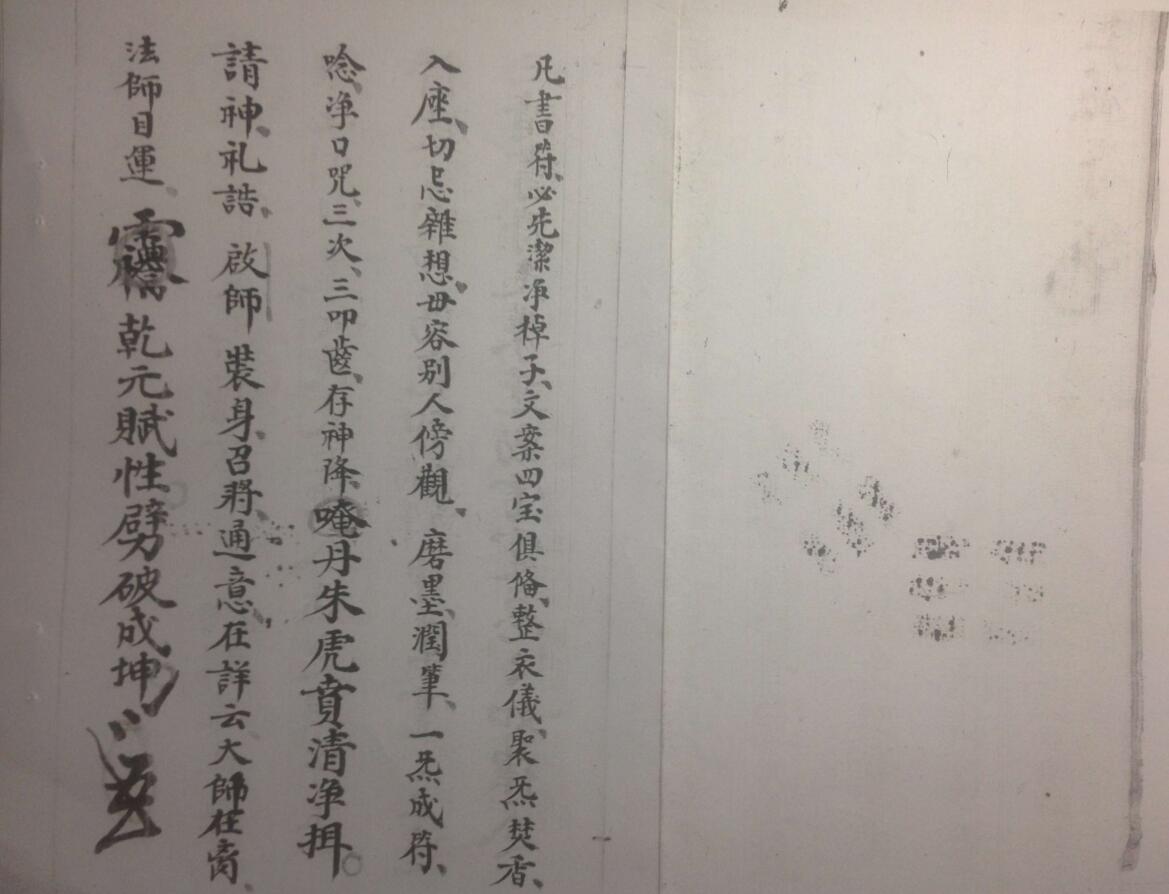 凡書符、必先潔净棹子、文案四宝俱俻、整衣儀、聚炁焚香、
入座、切忌雜想、毋容别人傍觀、磨墨、潤筆、一炁成符、
唸净口咒、三次、三叩齒、存神降、唵丹朱虎賁清净揖。
請神、礼誥、啟師裝身、召將、通意、在詳云大師在
法師目運、乾元賦性劈破成坤